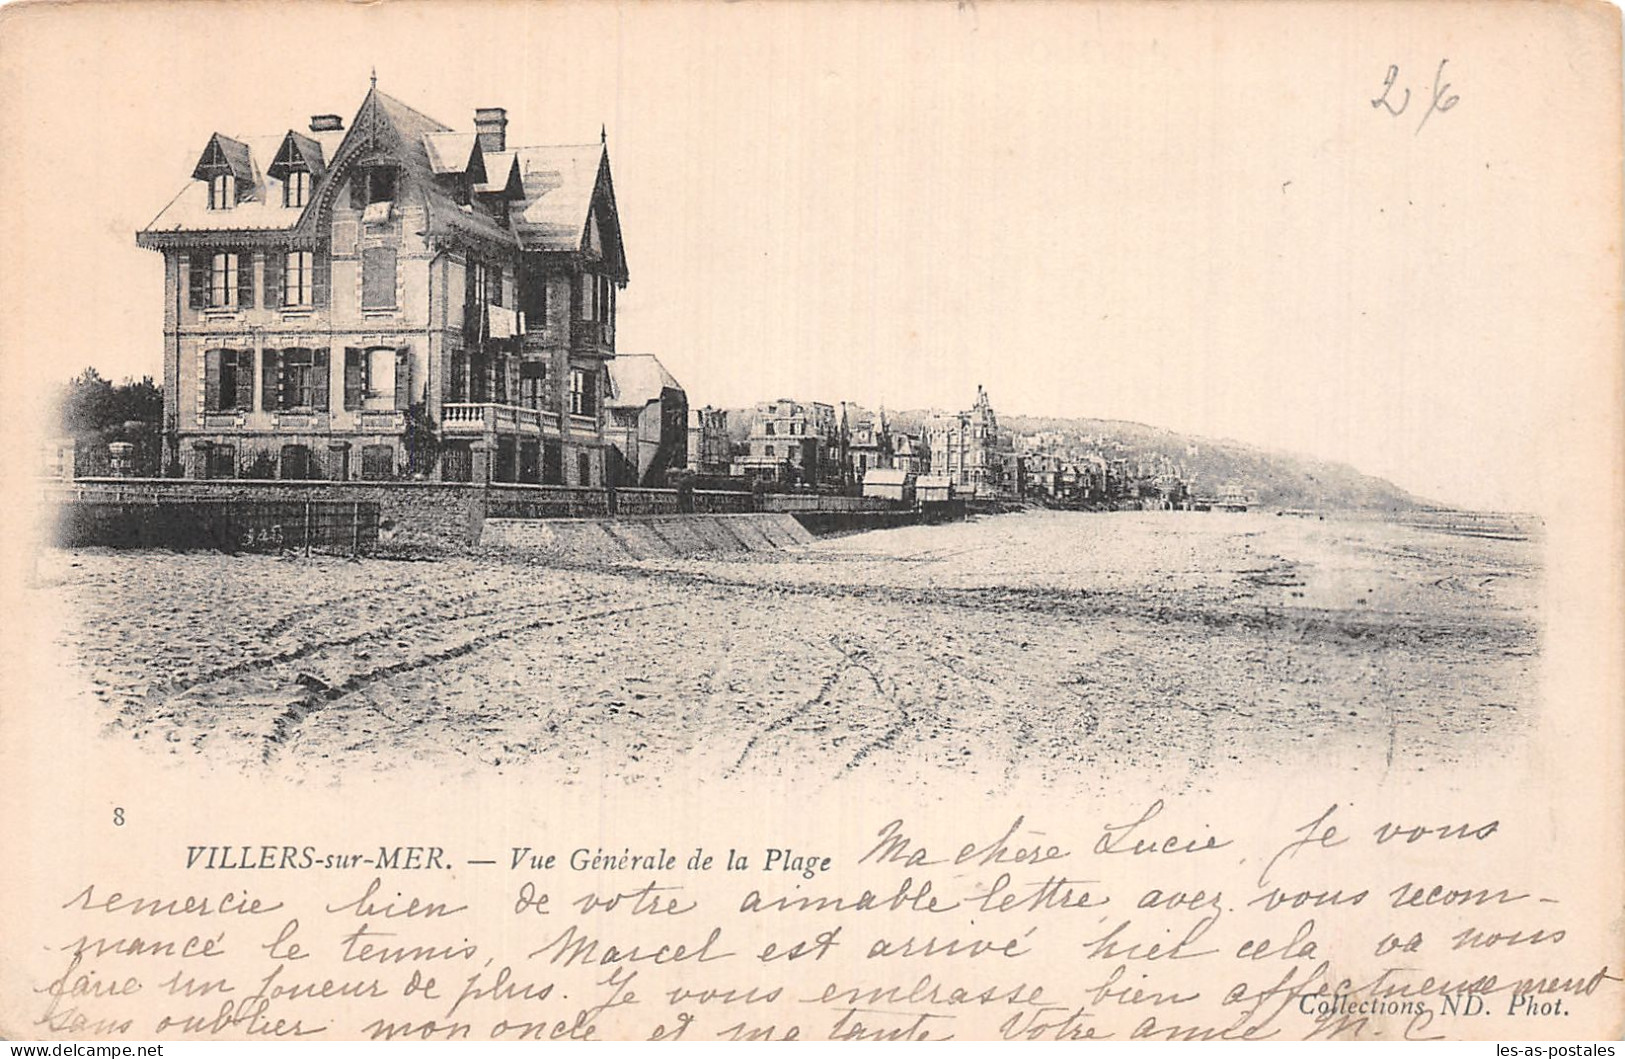 26
8
VILLERS-sur-MER. — Vue Générale de la Plage
Ma chère Lucie, Je vous
remercie bien de votre aimable lettre, avez vous recom-
mancé le tennis, Marcel est arrivé hiel cela va nous
faire un joueur de plus. Je vous embrasse bien affectueusement
sans oublier mon oncle et ma tante Votre amie M. C.
Collections ND. Phot.
les-as-postales